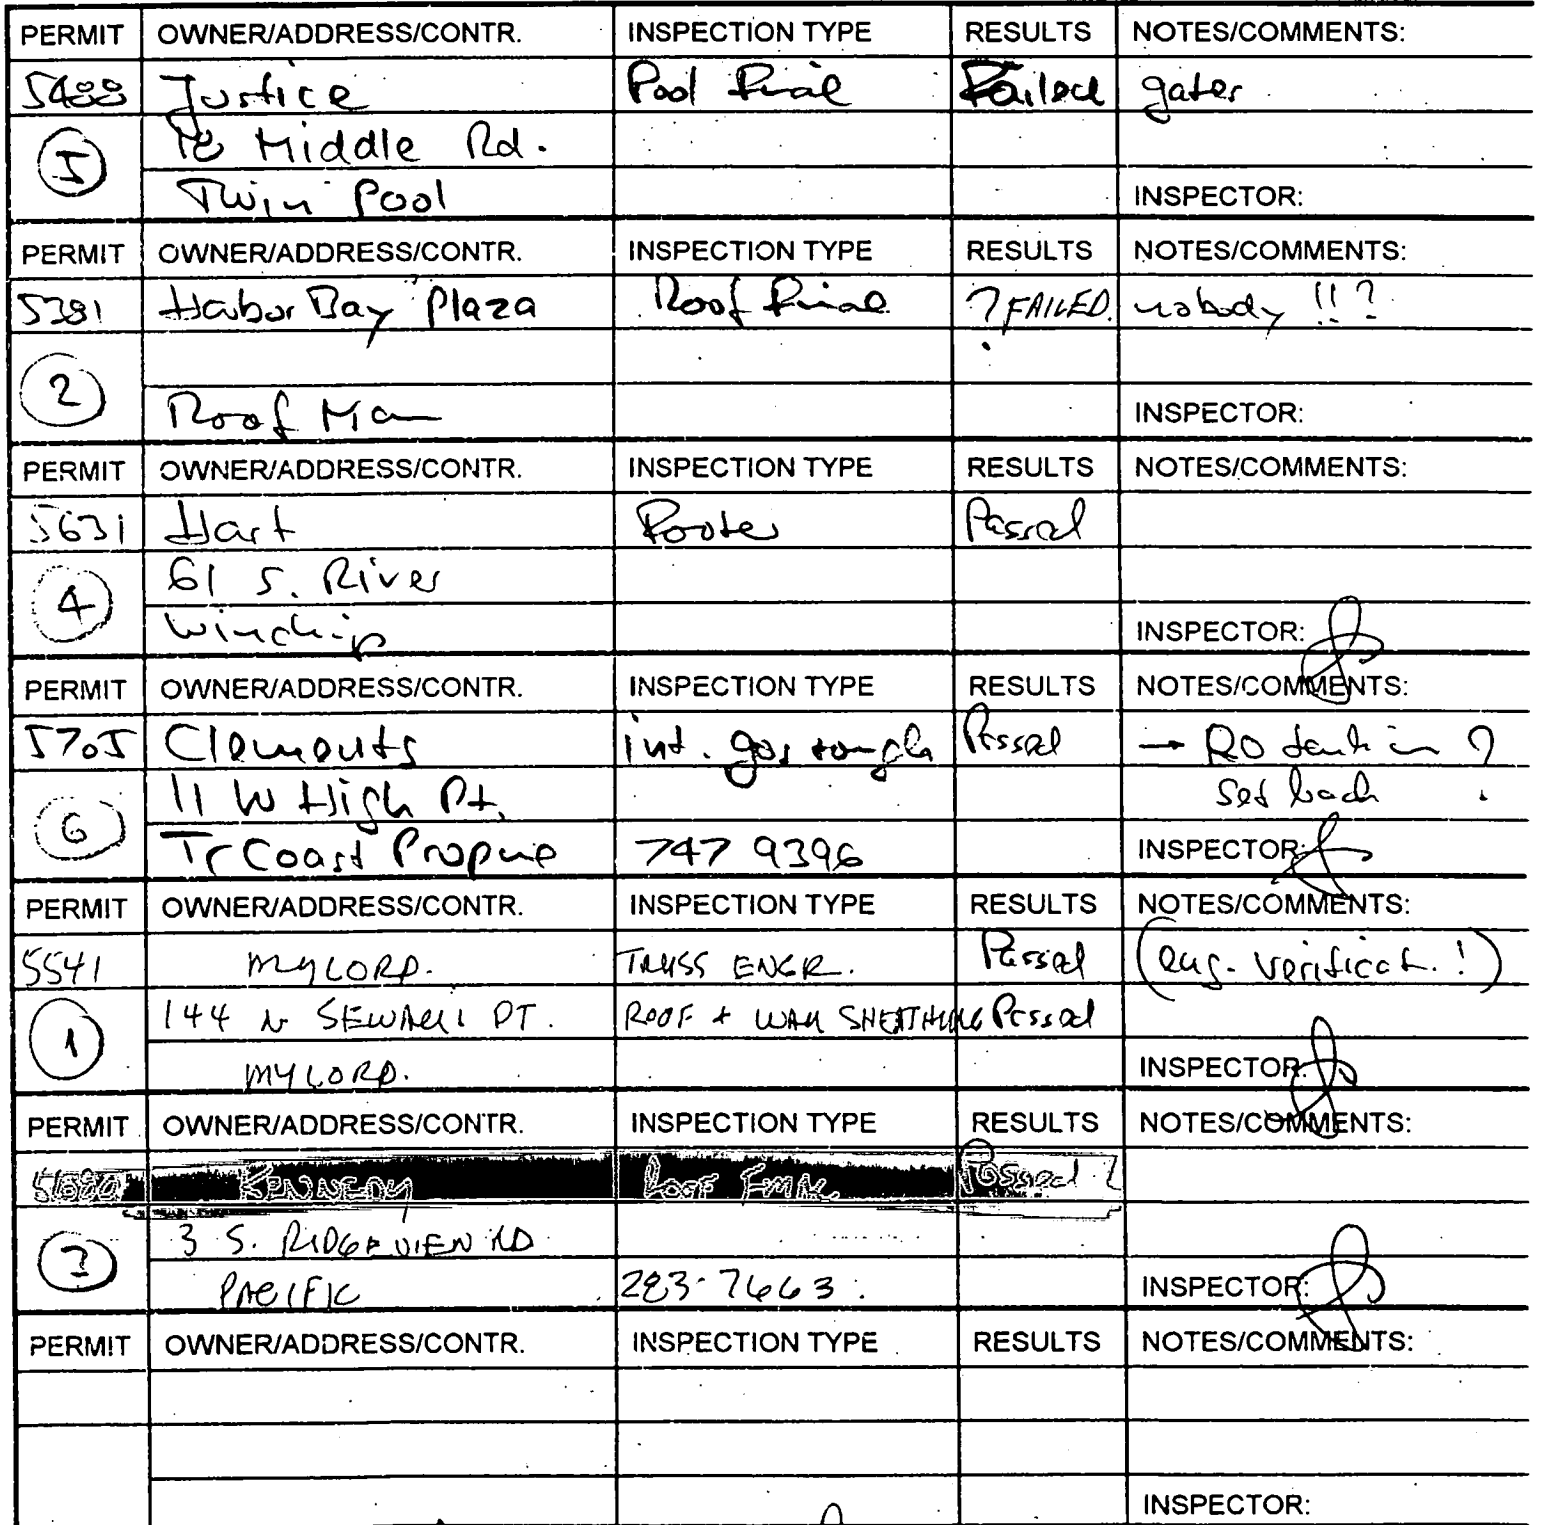 PERMIT OWNER/ADDRESS/CONTR. INSPECTION TYPE RESULTS NOTES/COMMENTS:
5488 Justice Pool Final Failed gates
5 18 Middle Rd.
Twin Pool INSPECTOR:
PERMIT OWNER/ADDRESS/CONTR. INSPECTION TYPE RESULTS NOTES/COMMENTS:
5381 Harbor Bay Plaza Roof Final ? FAILED. nobody !!?
2
Roof Man INSPECTOR:
PERMIT OWNER/ADDRESS/CONTR. INSPECTION TYPE RESULTS NOTES/COMMENTS:
5631 Hart Footer Passed
4 61 S. River
Winchip INSPECTOR:
PERMIT OWNER/ADDRESS/CONTR. INSPECTION TYPE RESULTS NOTES/COMMENTS:
5705 Clements int. gas rough Passed → RO tank in ?
6 11 W High Pt. set back
Tr Coast Propane 747 9396 INSPECTOR:
PERMIT OWNER/ADDRESS/CONTR. INSPECTION TYPE RESULTS NOTES/COMMENTS:
5541 MYCORP. TRUSS ENGR. Passed (eng. verificat. !)
1 144 N SEWALL PT. ROOF + WALL SHEATHING Passed
MYCORP. INSPECTOR:
PERMIT OWNER/ADDRESS/CONTR. INSPECTION TYPE RESULTS NOTES/COMMENTS:
KENNEDY ROOF FINAL Passed
3 3 S. RIDGEVIEW RD
PACIFIC 283-7663. INSPECTOR:
PERMIT OWNER/ADDRESS/CONTR. INSPECTION TYPE RESULTS NOTES/COMMENTS:
INSPECTOR: